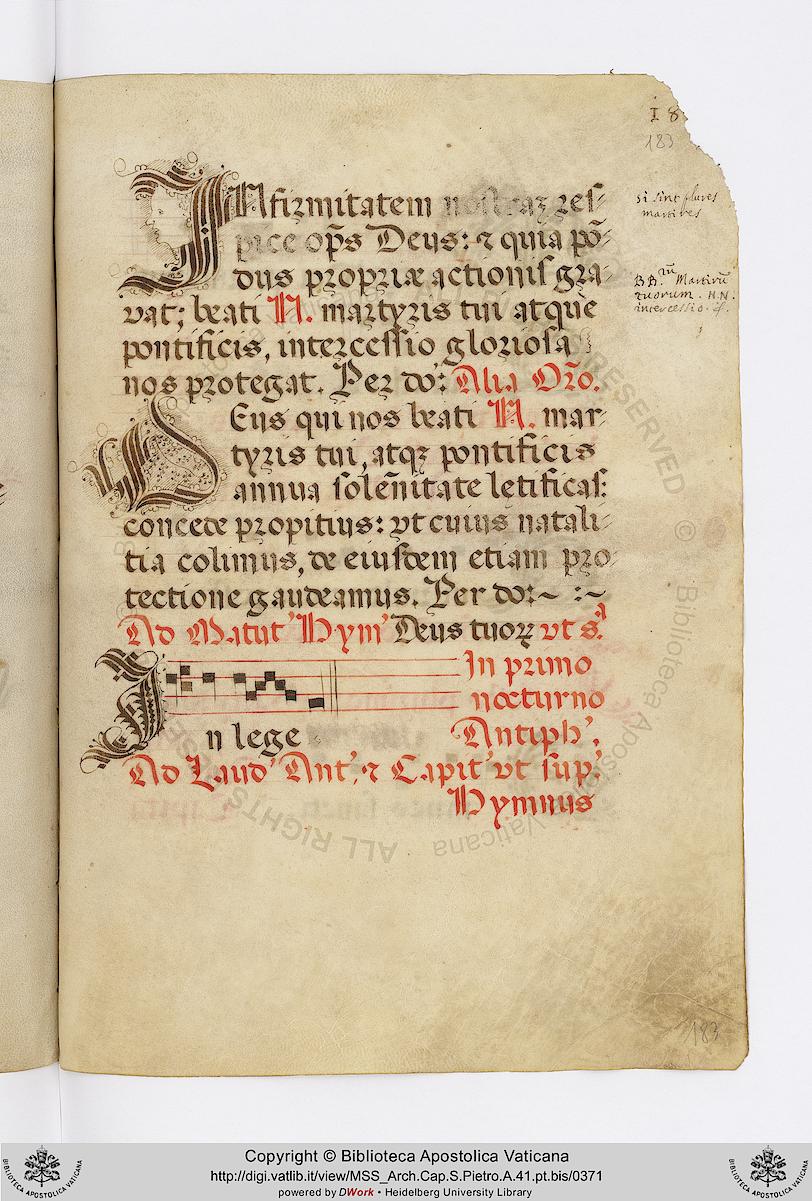 I 8
183
INfirmitatem nostraꝫ res-
pice op̃s Deus: ⁊ quia põ-
dus propriæ actionis gra-
vat; beati N. martyris tui atque
pontificis, intercessio gloriosa
nos protegat. Per do: Alia Or̃o.
DEus qui nos beati N. mar-
tyris tui, atqꝫ pontificis
annua soleñitate letificas:
concede propitius: vt cuius natali-
tia colimus, de eiusdem etiam pro-
tectione gaudeamus. Per do:~ :~
Ad Matut' Hym' Deus tuoꝝ vt s.ª
In primo
nocturno
In lege Antiph'.
Ad Laud' Ant', ⁊ Capit' vt sup.
Hymnus
si sint plures
martires
BB.rũ Martirũ
tuorum. N.N.
intercessio. &.
183
ALL RIGHTS RESERVED © Biblioteca Apostolica Vaticana
Copyright © Biblioteca Apostolica Vaticana
http://digi.vatlib.it/view/MSS_Arch.Cap.S.Pietro.A.41.pt.bis/0371
powered by DWork • Heidelberg University Library
BIBLIOTECA APOSTOLICA VATICANA
BIBLIOTECA APOSTOLICA VATICANA